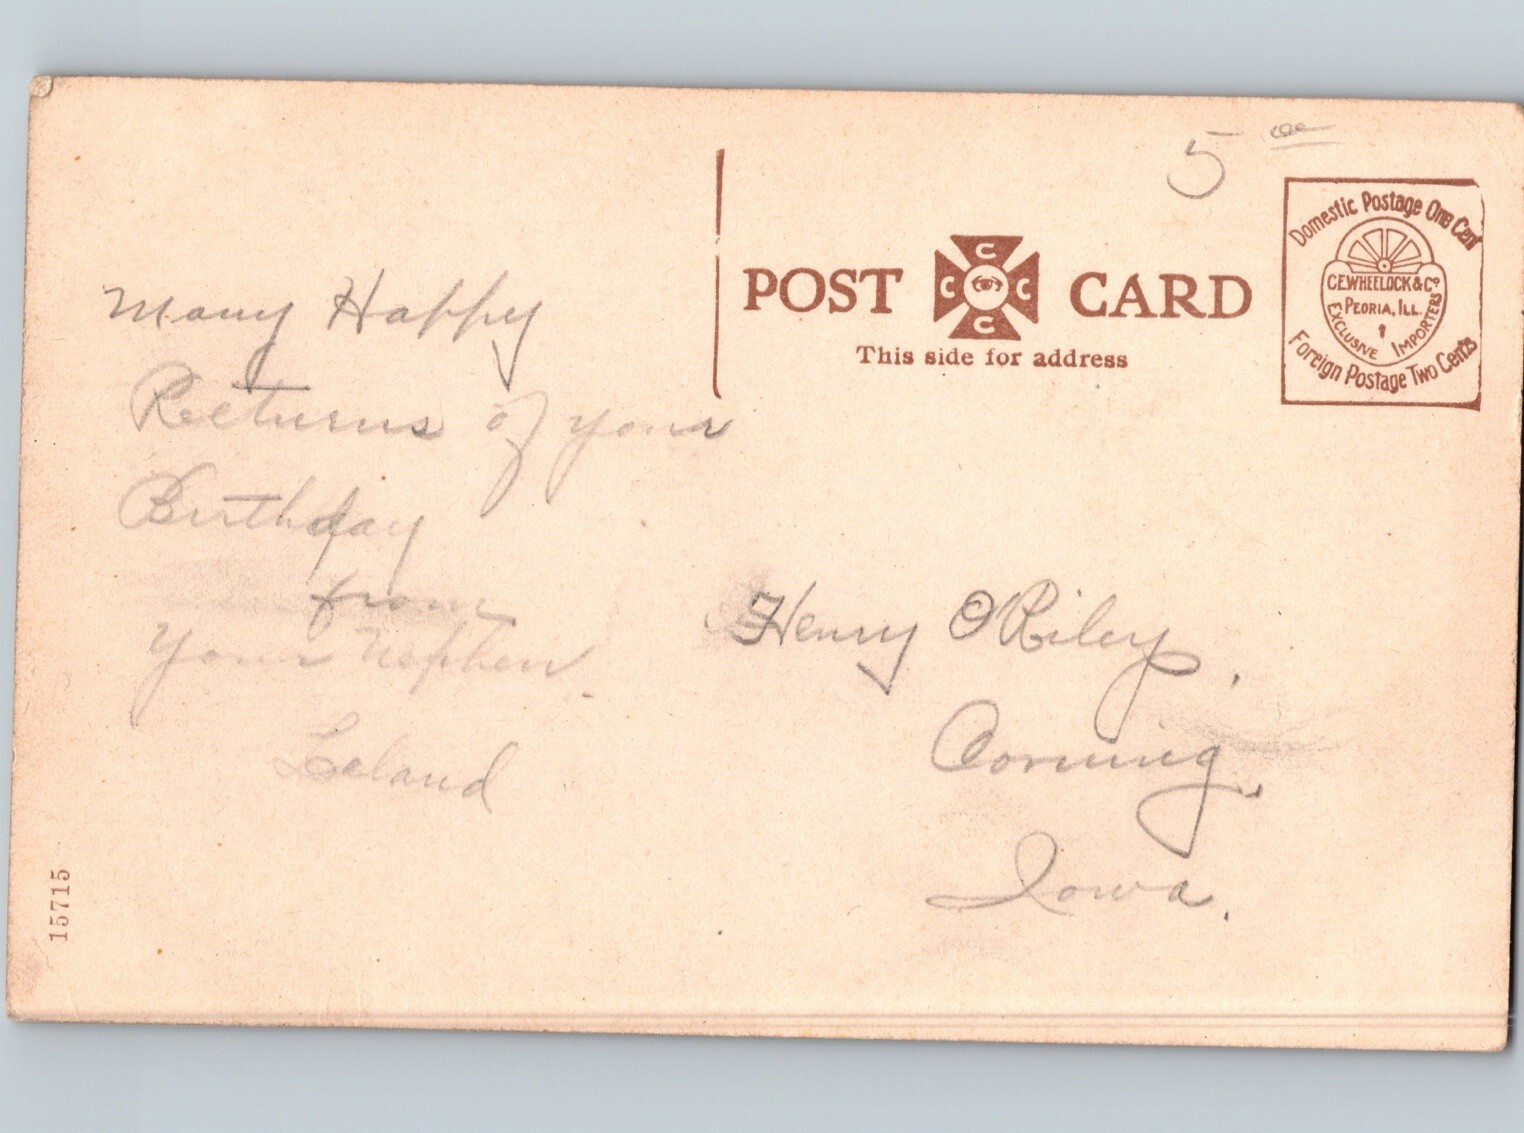 Many Happy
Recturns of your
Birthday
from
your nephew.
Leland
15715
5 00
POST CARD
C C C C
This side for address
Domestic Postage One Cent
C.E. WHEELOCK & Co
PEORIA, ILL.
EXCLUSIVE IMPORTERS
Foreign Postage Two Cents
Henry O Riley,
Corning,
Iowa.